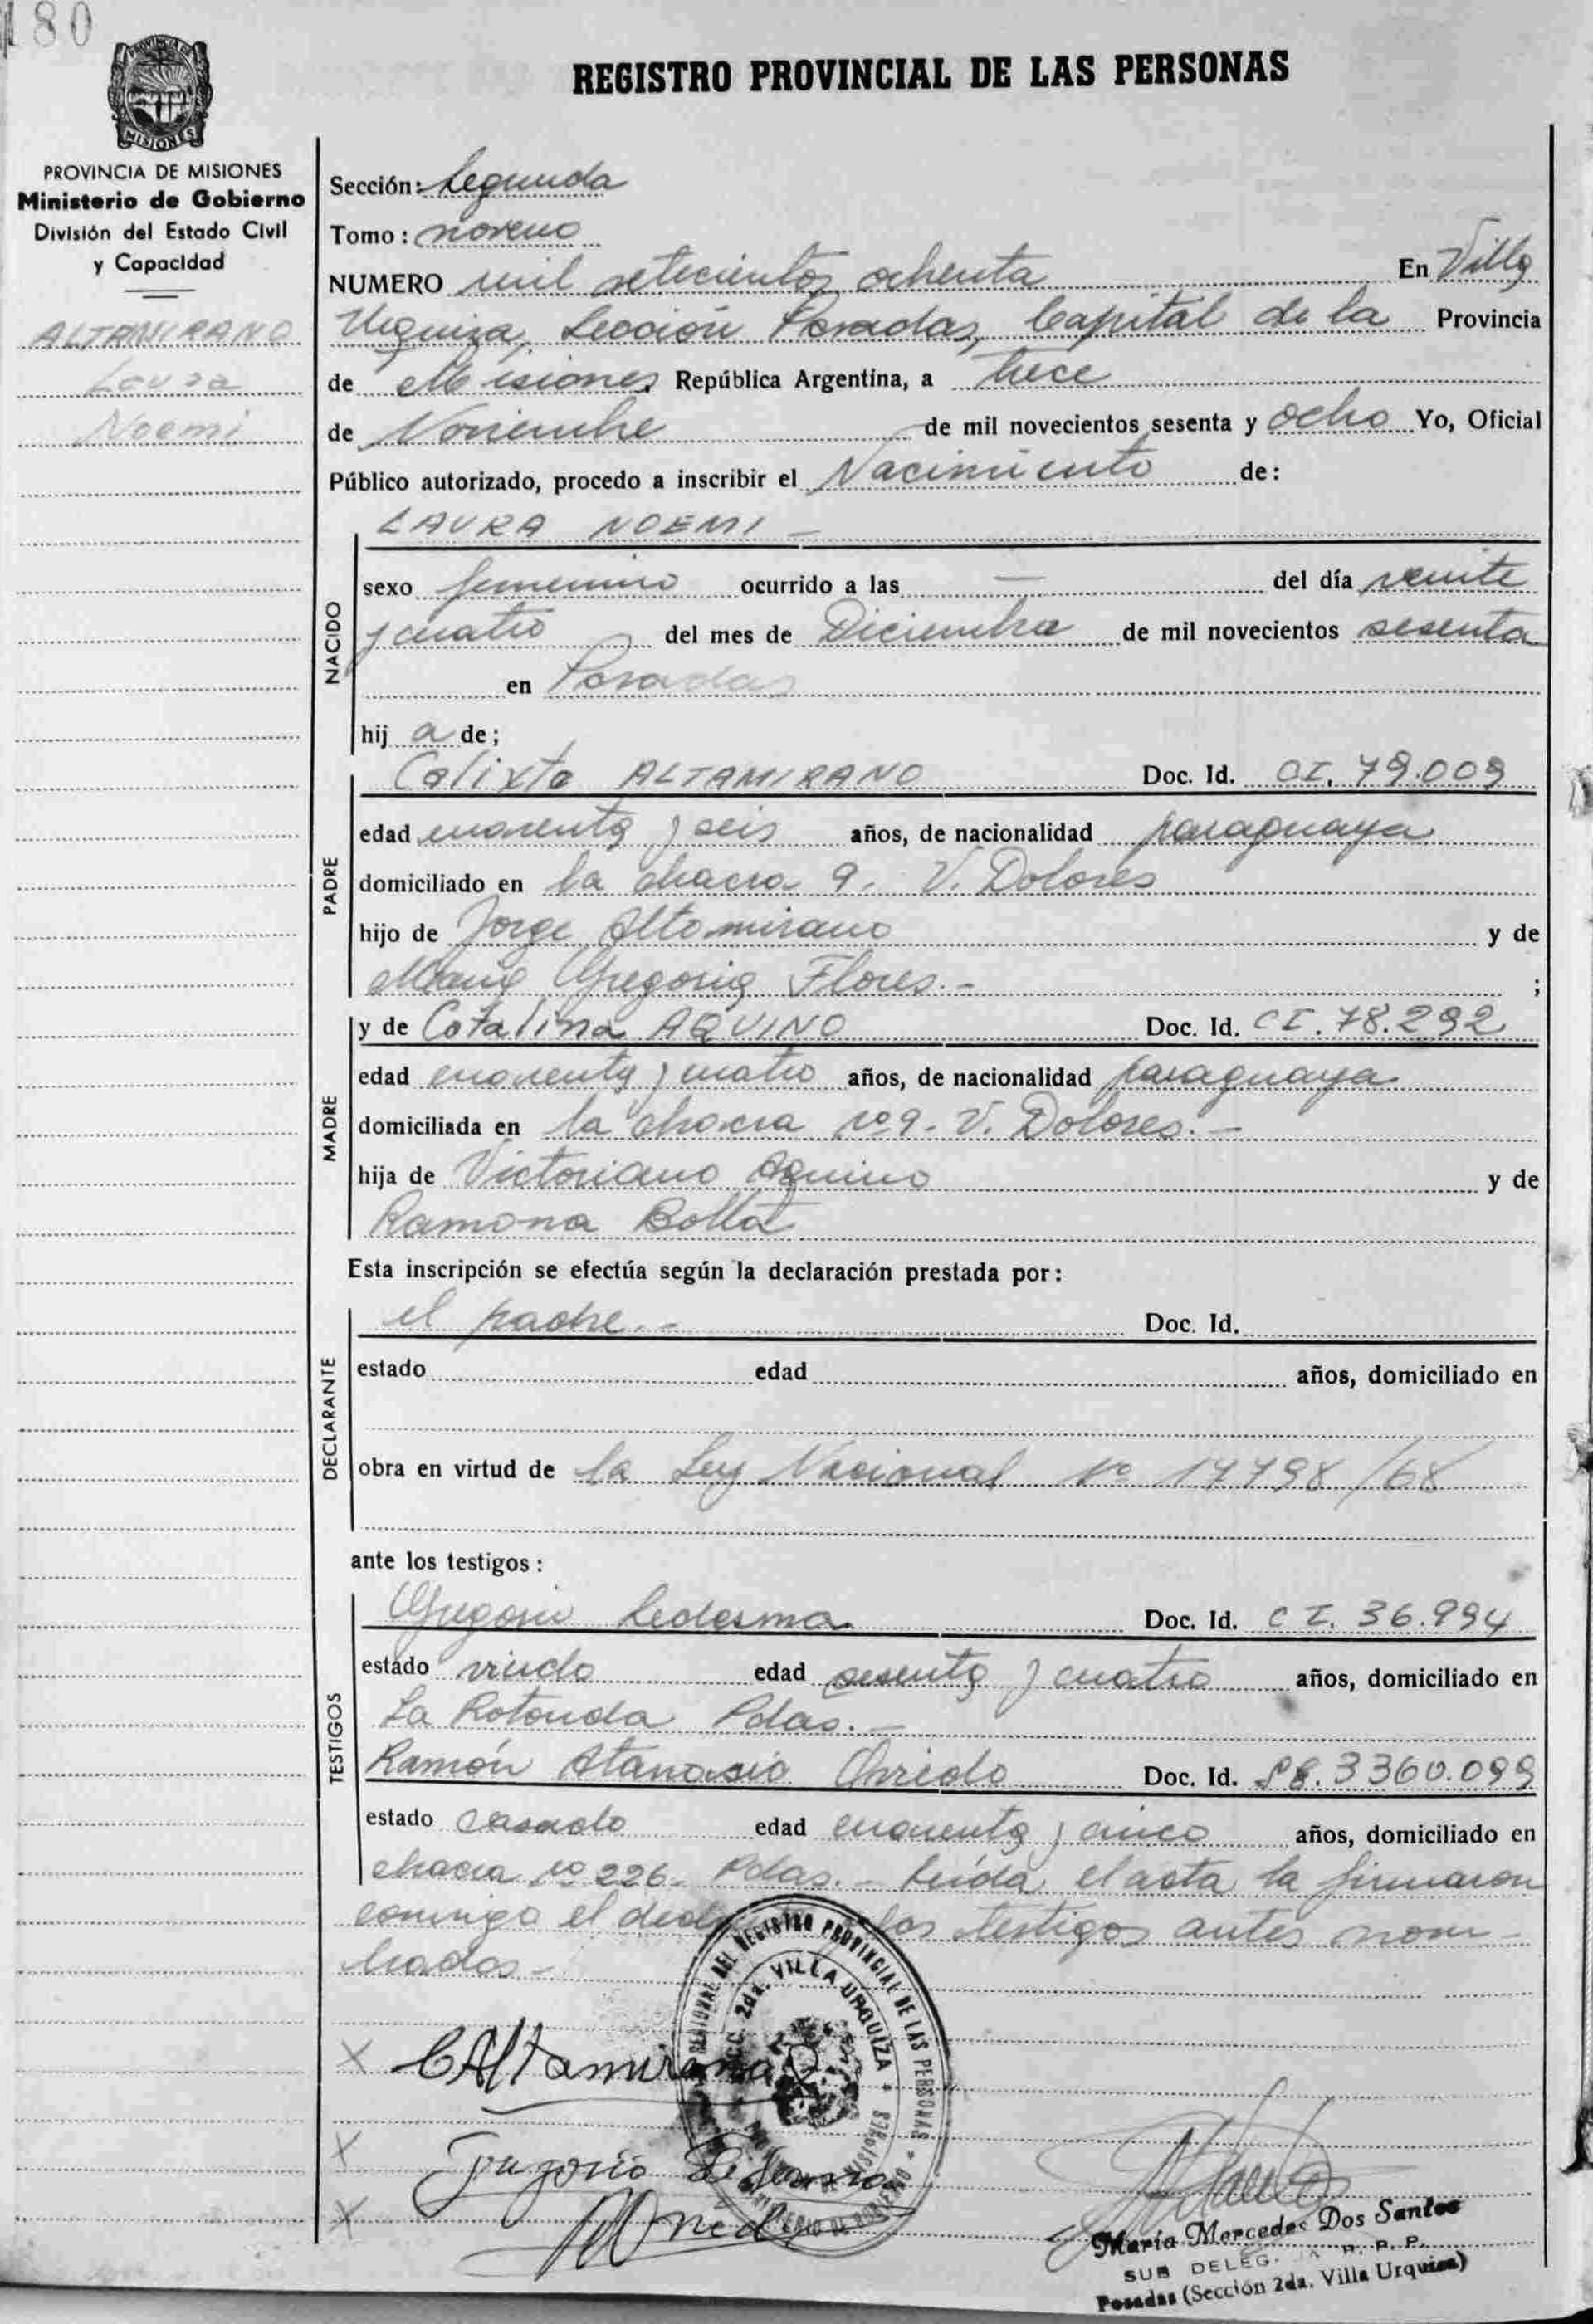 180
REGISTRO PROVINCIAL DE LAS PERSONAS
PROVINCIA DE
MISIONES
PROVINCIA DE MISIONES
Ministerio de Gobierno
División del Estado Civil
y Capacidad
ALTAMIRANO
Laura
Noemi
Sección: Segunda
Tomo: noveno
NUMERO mil setecientos ochenta En Villa
Urquiza, Sección Posadas, Capital de la Provincia
de Misiones República Argentina, a trece
de Noviembre de mil novecientos sesenta y ocho Yo, Oficial
Público autorizado, procedo a inscribir el Nacimiento de:
LAURA NOEMI -
NACIDO
sexo femenino ocurrido a las — del día veinte
y cuatro del mes de Diciembre de mil novecientos sesenta
en Posadas
hij a de;
PADRE
Calixto ALTAMIRANO Doc. Id. CI. 79.009
edad cuarenta y seis años, de nacionalidad paraguaya
domiciliado en la chacra 9. V. Dolores
hijo de Jorge Altamirano y de
Maria Gregoria Flores.- ;
MADRE
y de Catalina AQUINO Doc. Id. CI. 78.292
edad cuarenta y cuatro años, de nacionalidad paraguaya
domiciliada en la chacra nº 9. V. Dolores.-
hija de Victoriano Aquino y de
Ramona
Esta inscripción se efectúa según la declaración prestada por:
DECLARANTE
el padre.- Doc. Id.
estado edad años, domiciliado en
obra en virtud de la Ley Nacional Nº 17798/68
ante los testigos:
TESTIGOS
Gregorio Ledesma Doc. Id. CI. 36.994
estado viudo edad sesenta y cuatro años, domiciliado en
La Rotonda Pdas.-
Ramón Atanasio Doc. Id. 3360.099
estado casado edad cuarenta y cinco años, domiciliado en
chacra nº 226- Pdas.- Leída el acta la firmaron
conmigo el los testigos antes nom-
brados-
REGISTRO PROVINCIAL DE LAS PERSONAS
2da. VILLA URQUIZA
MISIONES
X CAltamirano
X Gregorio Ledesma
X
Maria Mercedes Dos Santos
SUB DELEG. R. P. P.
Posadas (Sección 2da. Villa Urquiza)